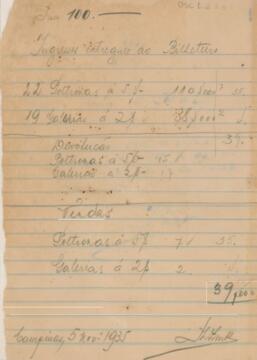 100.—
Ingressos entregue ao Billetteiro
22 Poltronas á 5$ 110$000
19 Galerias á 2$ 38$000
39
Devolução
Poltronas á 5$ 15
Galerias á 2$ 17
Vendas
Poltronas á 5$ 7 35
Galerias á 2$ 2
39,000
Campinas, 5 Nov. 1935